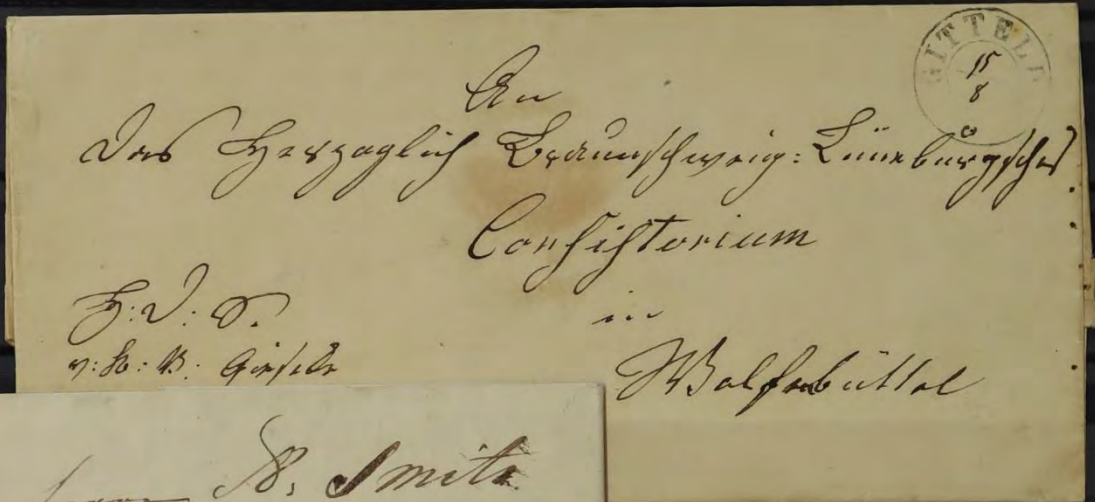 GITTELDE
15
8
An
Das Herzoglich Braunschweig: Lüneburgsche
Consistorium
in
Wolfenbüttel
H: D: S.
v: K: B:
Smits